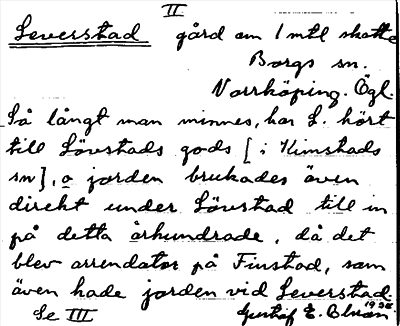 II
Leverstad gård om 1 mtl skatte
Borgs sn.
Norrköping. Ögl.
Så långt man minnes, har L. hört
till Lövstads gods [i Kimstads
sn], o jorden brukades även
direkt under Lövstad till in
på detta århundrade, då det
blev arrendator på Finstad, som
även hade jorden vid Leverstad
Se III Gustaf E. 1938